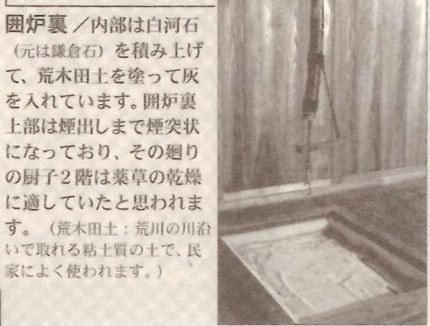 囲炉裏／内部は白河石
（元は鎌倉石）を積み上げ
て、荒木田土を塗って灰
を入れています。囲炉裏
上部は煙出しまで煙突状
になっており、その廻り
の厨子２階は薬草の乾燥
に適していたと思われま
す。（荒木田土：荒川の川沿
いで取れる粘土質の土で、民
家によく使われます。）